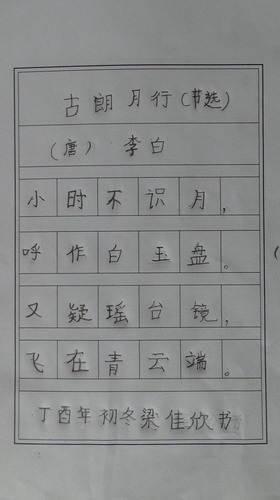 古朗月行(节选)
(唐) 李白
小时不识月,
呼作白玉盘。
又疑瑶台镜,
飞在青云端。
丁酉年初冬梁佳欣书